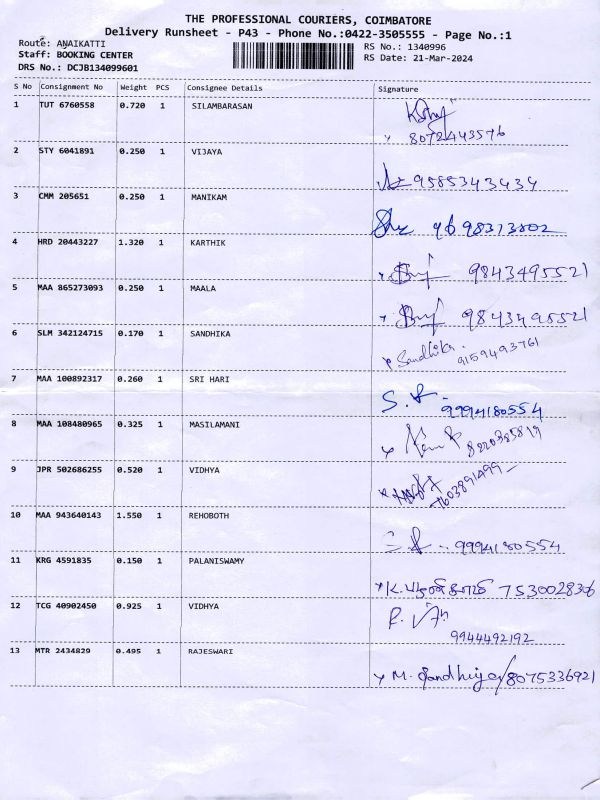 THE PROFESSIONAL COURIERS, COIMBATORE
Delivery Runsheet - P43 - Phone No.:0422-3505555 - Page No.:1
Route: ANAIKATTI
RS No.: 1340996
Staff: BOOKING CENTER
RS Date: 21-Mar-2024
DRS No.: DCJB134099601
S No Consignment No Weight PCS Consignee Details Signature
1 TUT 6760558 0.720 1 SILAMBARASAN
8072443576
2 STY 6041891 0.250 1 VIJAYA
9585343434
3 CMM 205651 0.250 1 MANIKAM
4 HRD 20443227 1.320 1 KARTHIK
9843495521
5 MAA 865273093 0.250 1 MAALA
9843495521
6 SLM 342124715 0.170 1 SANDHIKA
Sandhika 9159493761
7 MAA 100892317 0.260 1 SRI HARI
9994180554
8 MAA 108480965 0.325 1 MASILAMANI
9 JPR 502686255 0.520 1 VIDHYA
7603891499
10 MAA 943640143 1.550 1 REHOBOTH
9994180554
11 KRG 4591835 0.150 1 PALANISWAMY
12 TCG 40902450 0.925 1 VIDHYA
9944492192
13 MTR 2434829 0.495 1 RAJESWARI
8075336921